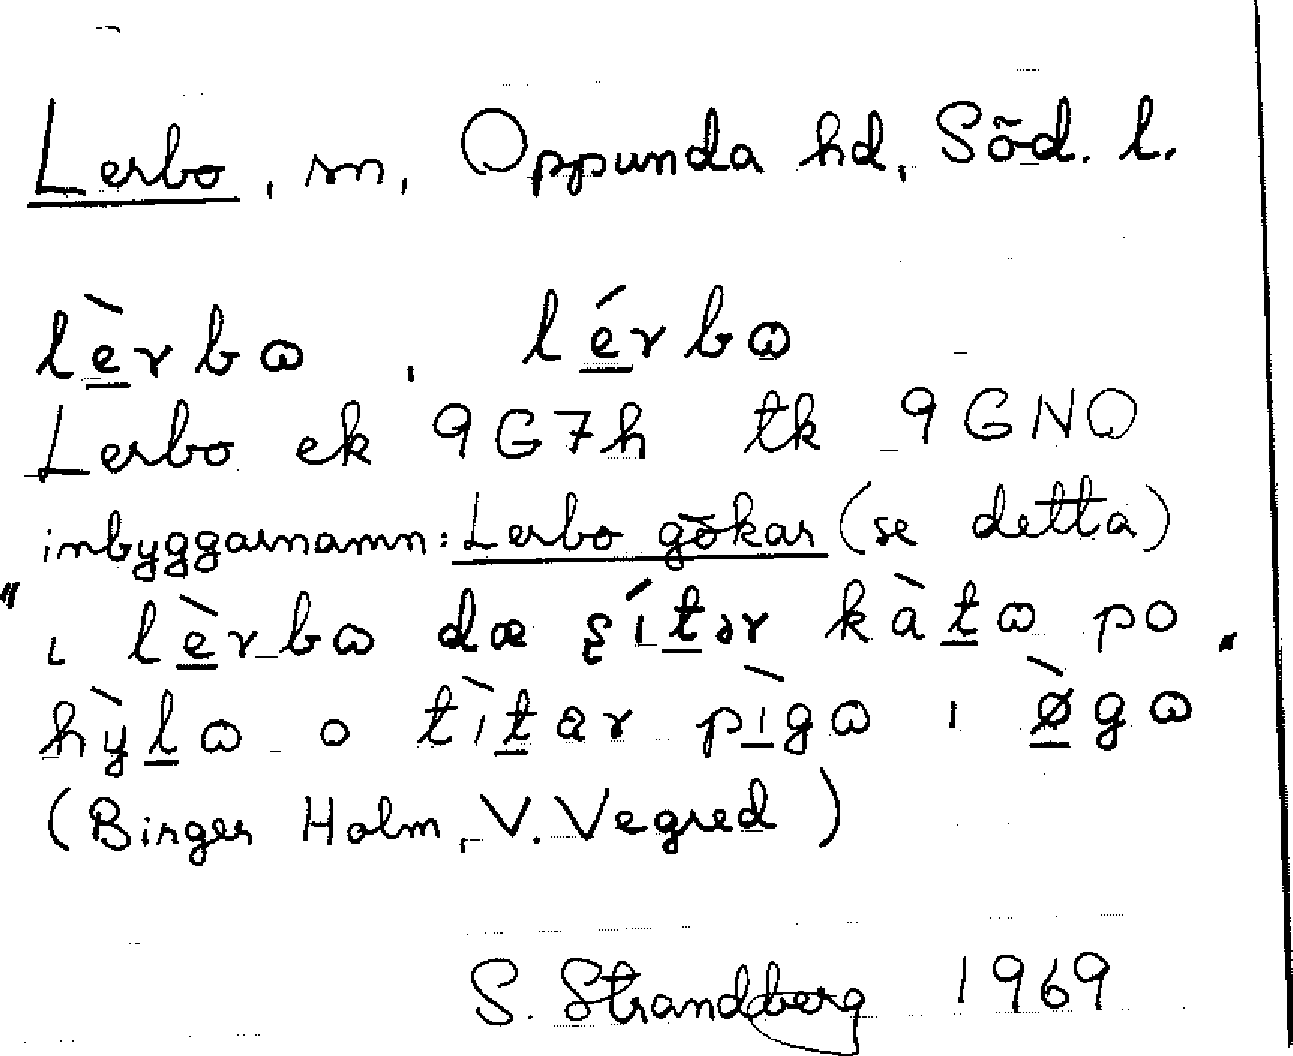 Lerbo, sn, Oppunda hd, Söd. l.
lè̱rbɷ, lé̱rbɷ
Lerbo ek 9G7h tk 9GNO
inbyggarnamn: Lerbo gökar (se detta)
"ɩ lè̱rbɷ dæ ʂítər kàtɷ po
hỳlɷ o tìtar pìgɷ ı ø̀gɷ
(Birger Holm, V. Vegred)
S. Strandberg 1969